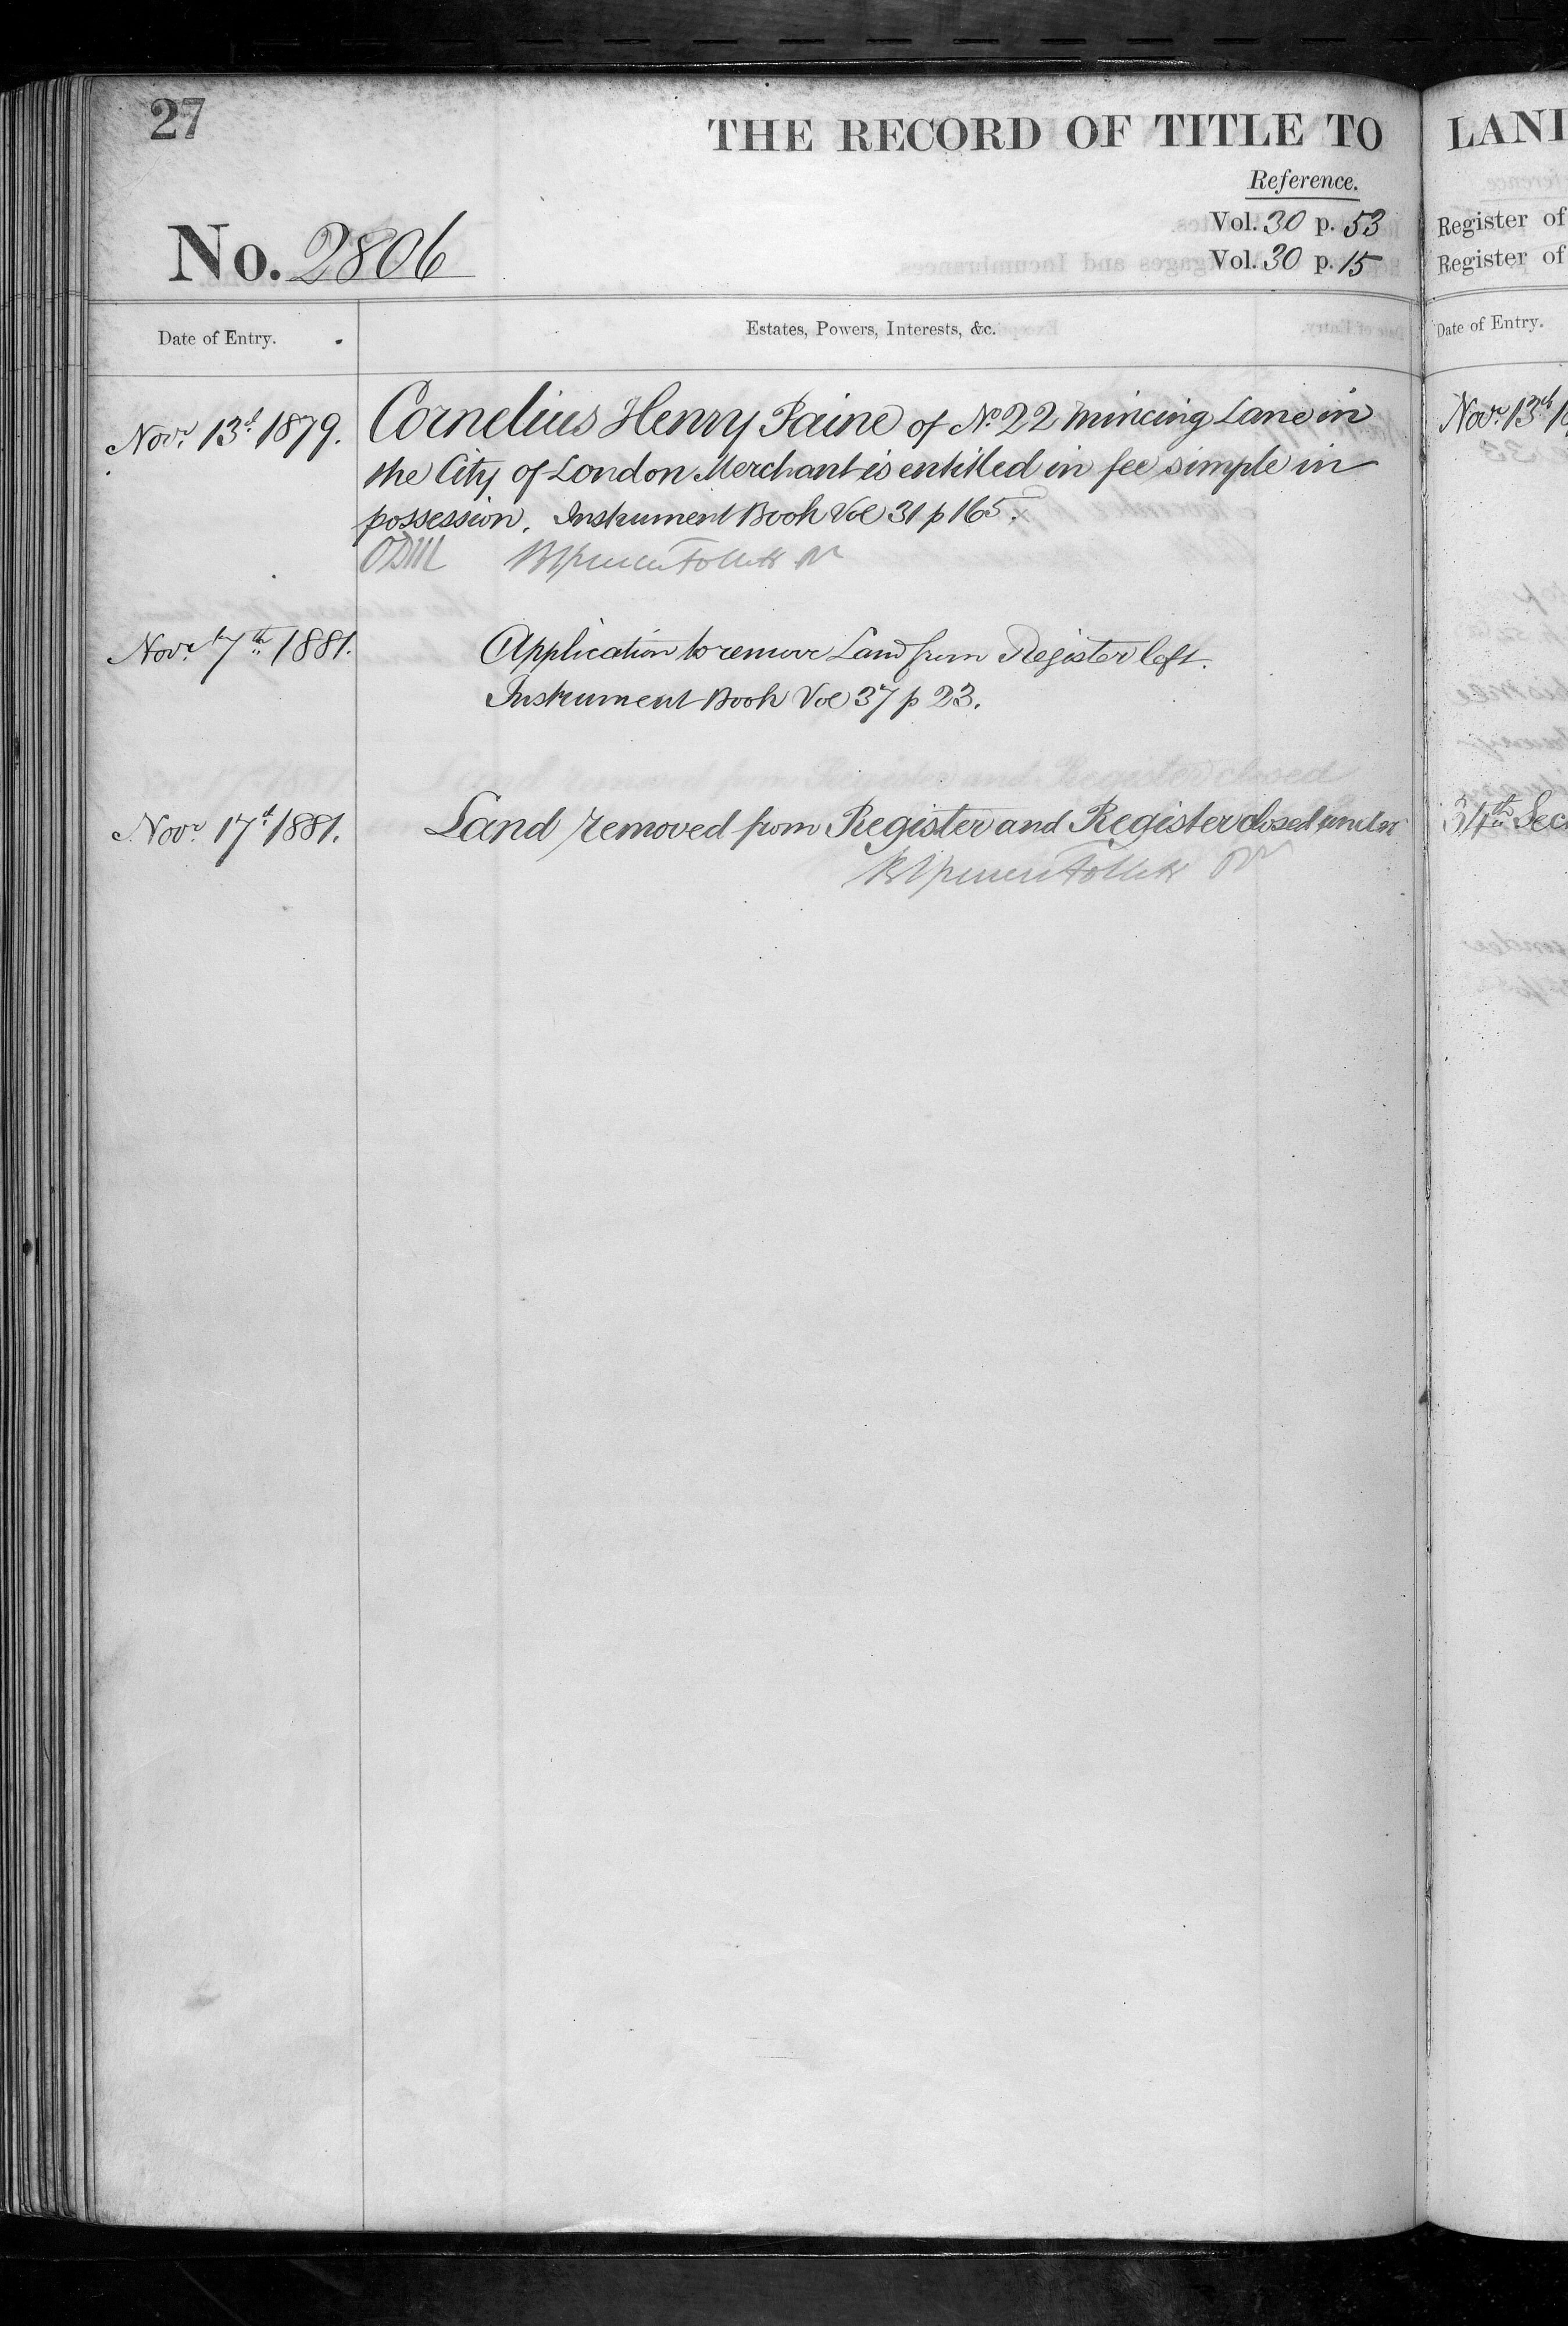 27
THE RECORD OF TITLE TO
Reference.
No. 2806
Vol. 30 p. 53
Vol. 30 p. 15
Date of Entry.
Estates, Powers, Interests, &c.
Novr. 13th 1879.
Cornelius Henry Paine of No. 22 Mincing Lane in
the City of London Merchant is entitled in fee simple in
possession. Instrument Book Vol 31 p 165.
Novr. 7th 1881.
Application to remove Land from Register left.
Instrument Book Vol 37 p 23.
Novr. 17th 1881.
Land removed from Register and Register closed under
LAND
Register of
Register of
Date of Entry.
Novr. 13th
34th Sec